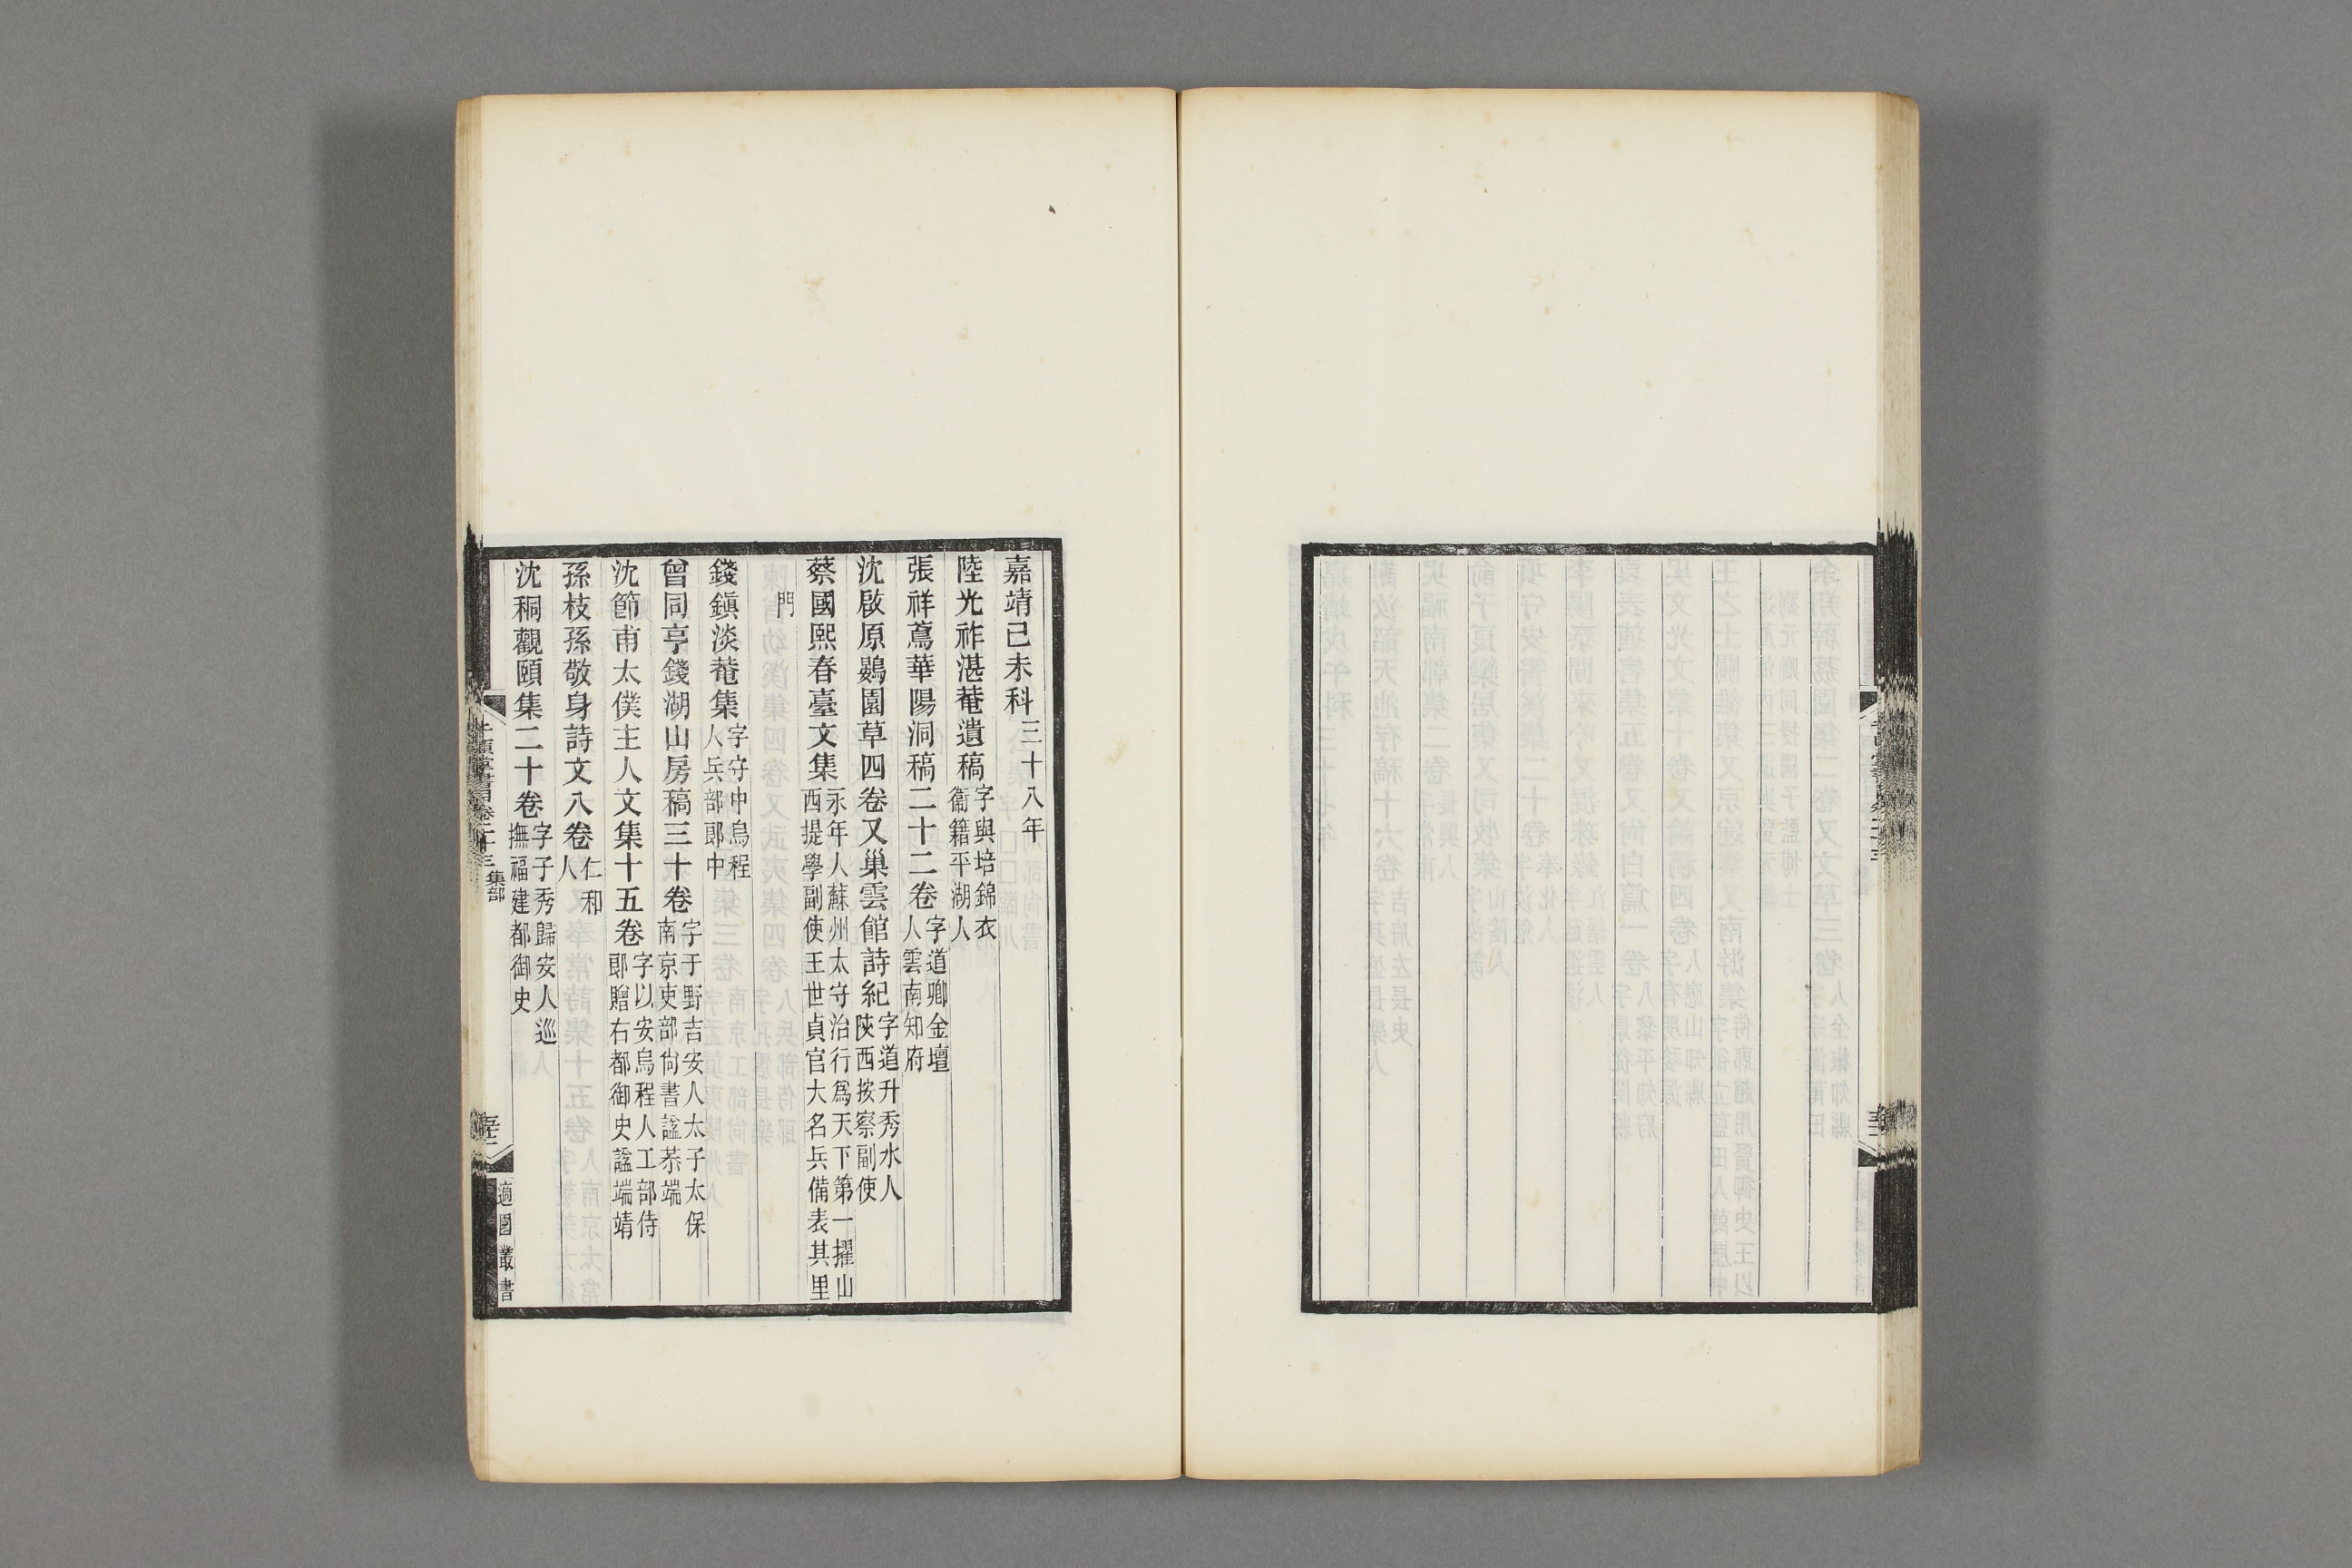 嘉靖己未科三十八年
陸光祚湛菴遺稿字與培錦衣衞籍平湖人
張祥鳶華陽洞稿二十二卷字道卿金壇人雲南知府
沈啟原鷃園草四卷又巢雲館詩紀字道升秀水人陝西按察副使
蔡國熙春臺文集永年人蘇州太守治行爲天下第一擢山西提學副使王世貞官大名兵備表其里
門
錢鎭淡菴集字守中烏程人兵部郎中
曾同亨錢湖山房稿三十卷字于野吉安人太子太保南京吏部尙書諡恭端
沈節甫太僕主人文集十五卷字以安烏程人工部侍郎贈右都御史諡端靖
孫枝孫敬身詩文八卷仁和人
沈秱觀頤集二十卷字子秀歸安人巡撫福建都御史
千頃堂書目卷二十三 集部
適園叢書